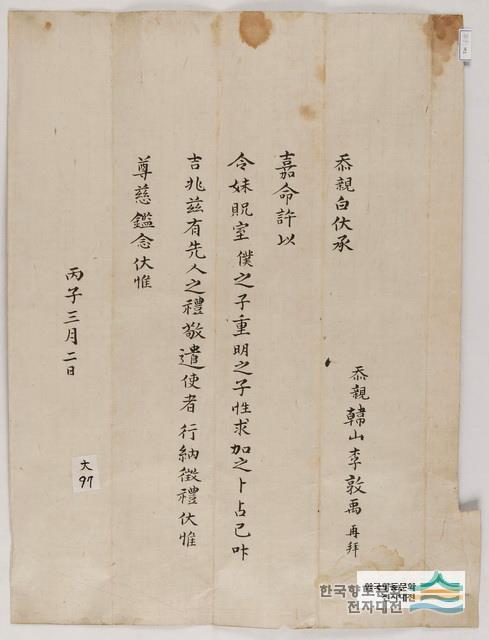 忝親韓山李敦禹 再拜
忝親白伏承
嘉命許以
令妹貺室僕之子重明之子性求加之卜占已叶
吉兆玆有先人之禮敬遣使者行納徵禮伏惟
尊慈鑑念伏惟
丙子三月二日
大
97
한국향토문화
전자대전
한국향토문화
전자대전